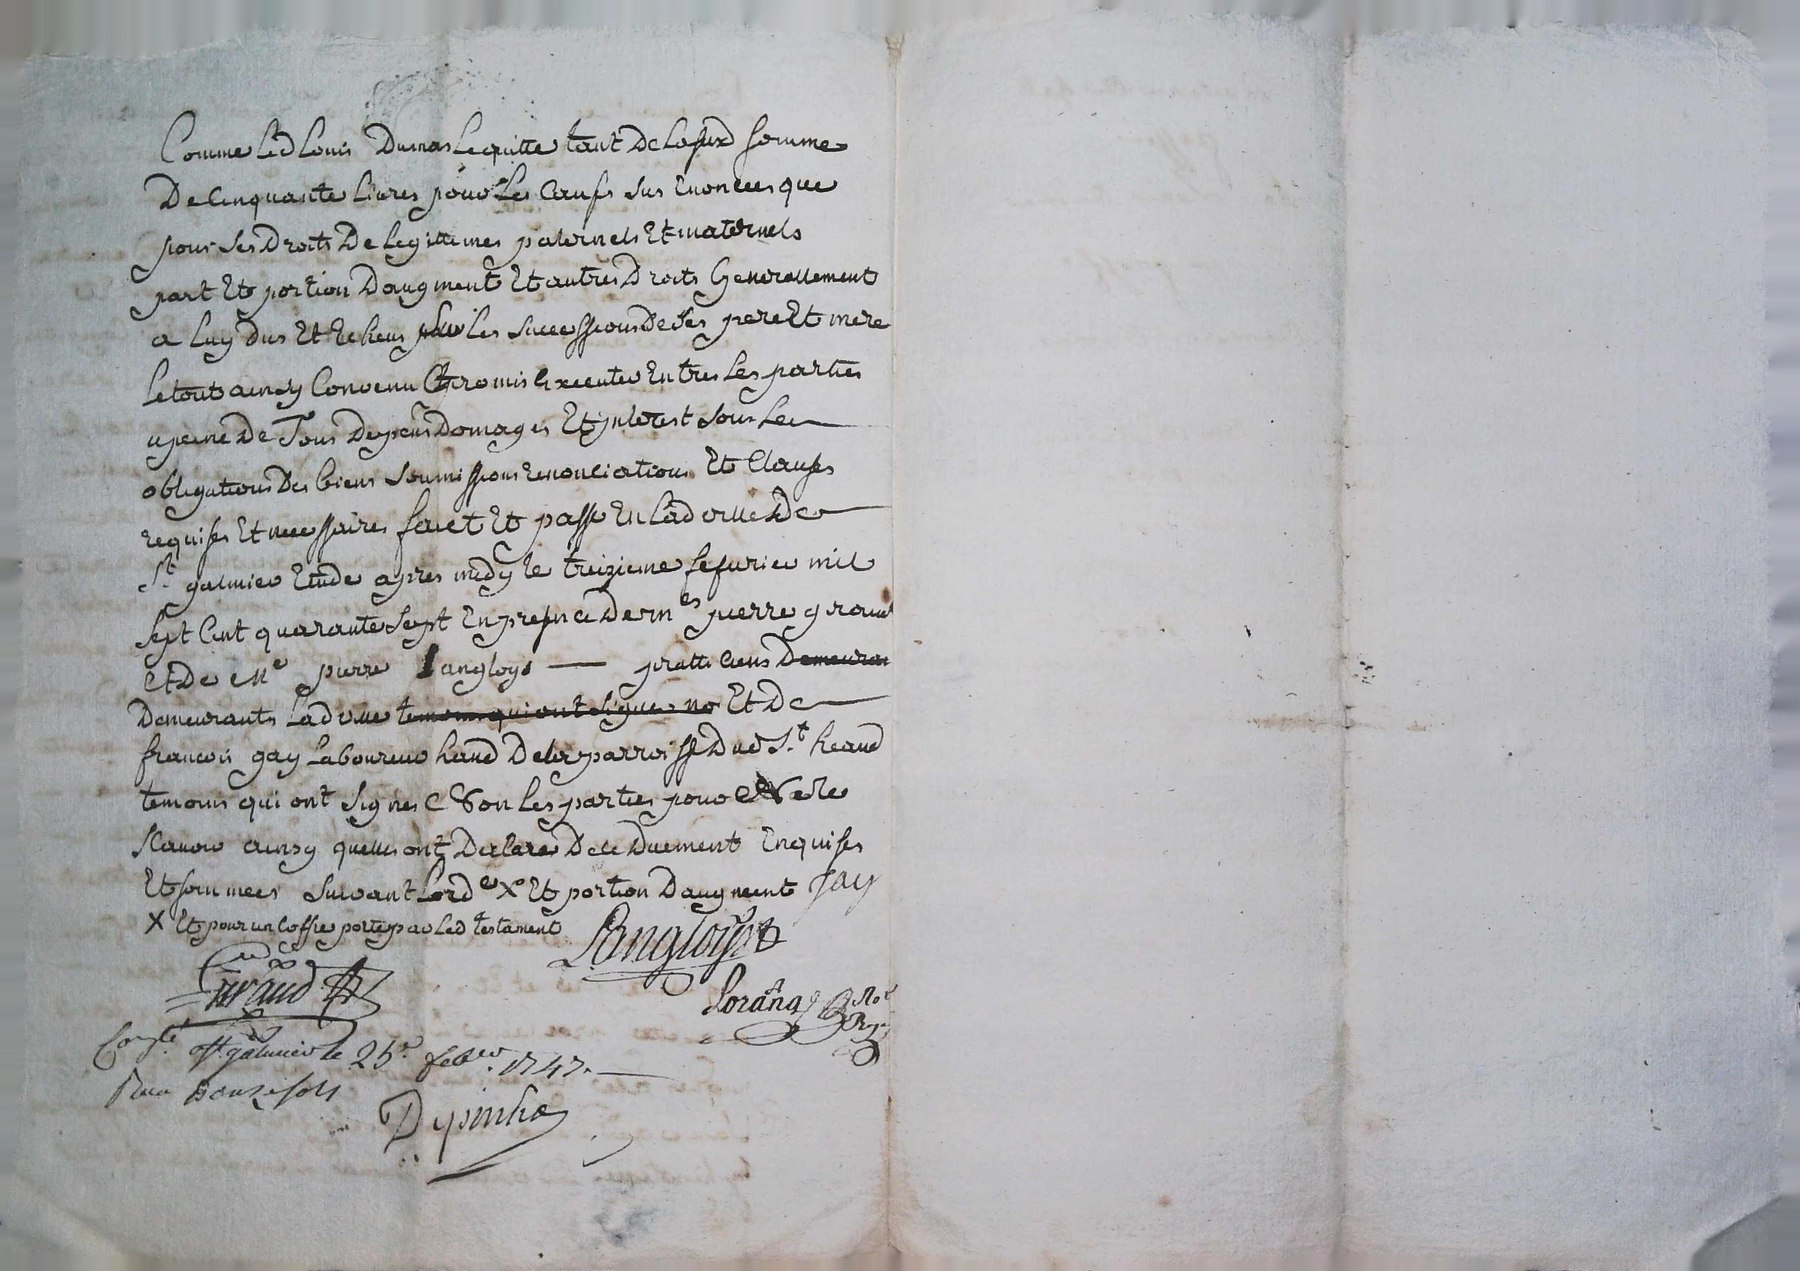 Comme Led Louis Dumas Le quitte tant De Lasusd somme
De Cinquante Livres pour Les Causes sus Enoncees que
pour ses Droits De Legittimes paternels Et maternels
part Et portion Daugment Et autres Droits Generallement
a Luy Dus Et Echeus sur Les successions De ses pere Et mere
Le tout ainsy Convenu Et promis Executer Entre Les parties
a peine De Tous Depens Domages Et jnterest sous Les
obligations Des biens soumissions renonciations Et Clauses
requises Et necessaires fait Et passe En Lad ville De
St galmier Etude apres midy le treizieme fefurier mil
sept Cent quarante sept En presence De mes pierre giraud
Et De Me pierre Langloys pratticiens Demeuran
Demeurants Lad ville temoins qui ont signes no Et De
francois gay Laboureur Dela parroisse Dud St heand
temoins qui ont signes Et non Les parties pour ne Le
scavoir ainsy quelles ont Declare De ce Duement Enquises
Et sommees suivant Lorde X Et portion Daugment Gay
X Et pour un Coffre porte par Led testament
Langlois
Giraud
Nore Ral
Conle a St galmier le 25e febvrier 1747.
Recu Douze sols